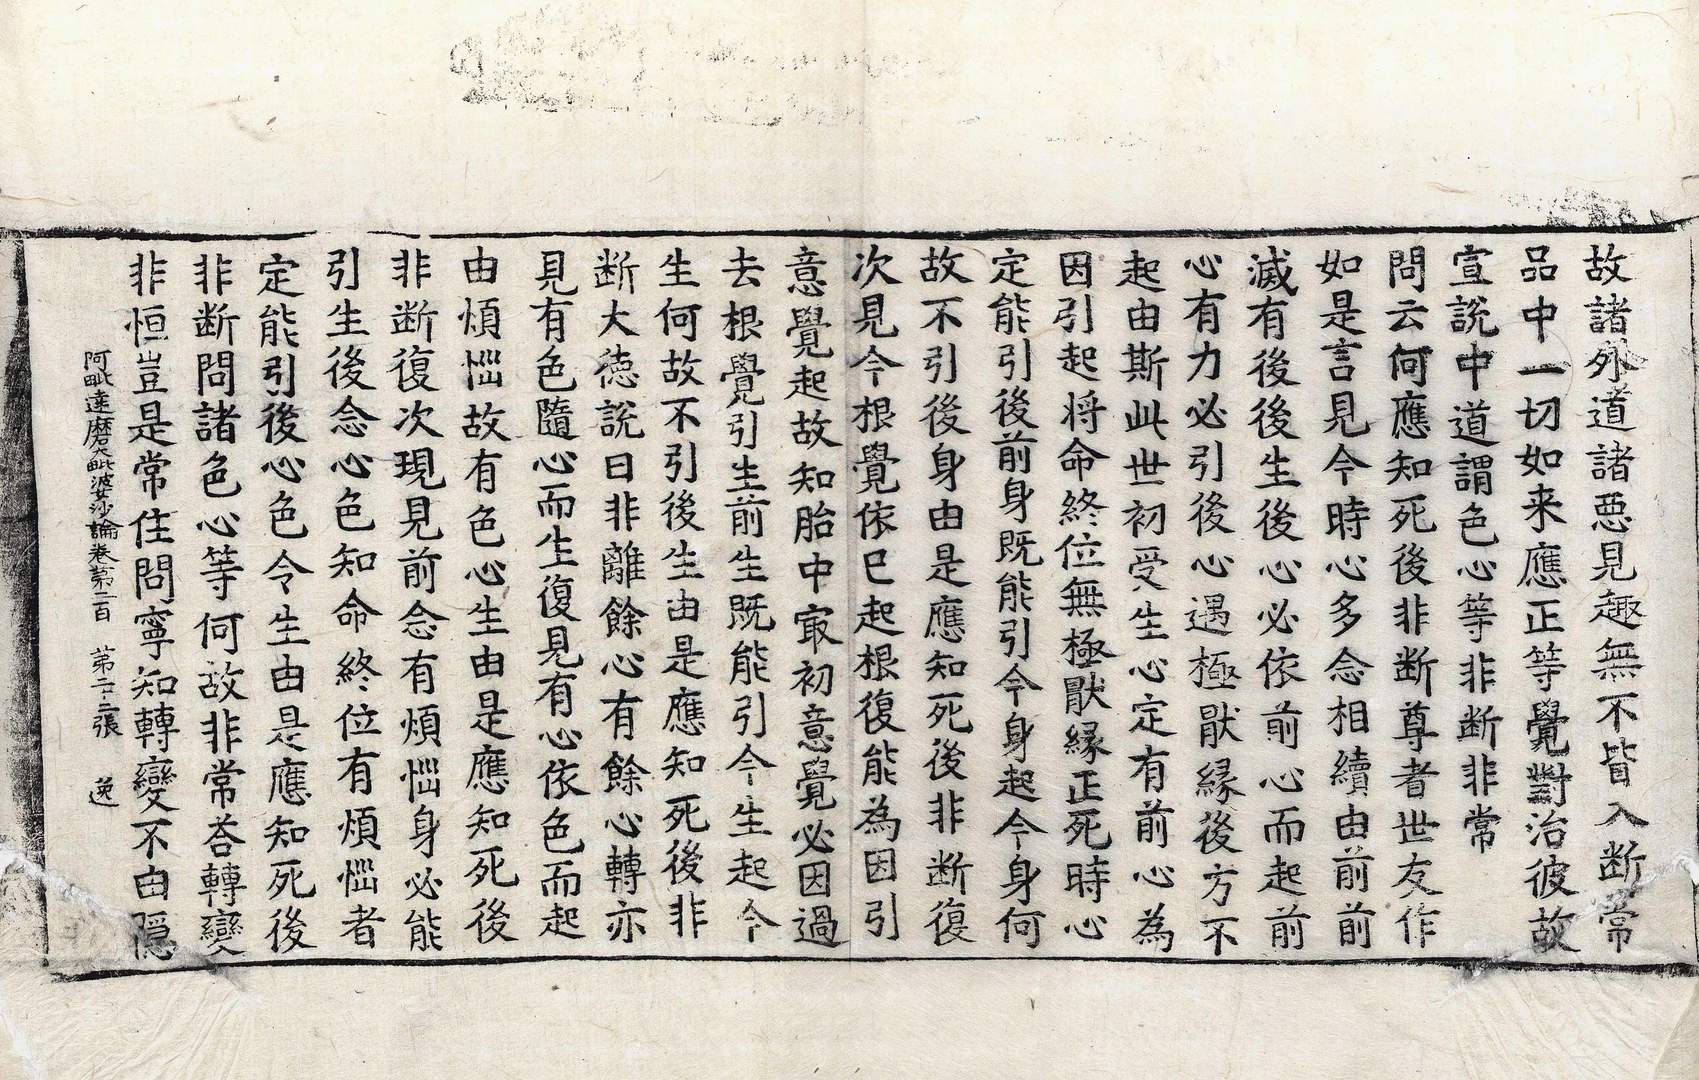 故諸外道諸惡見趣無不皆入断常
品中一切如来應正等覺對治彼故
宣說中道謂色心等非断非常
問云何應知死後非断尊者世友作
如是言見今時心多念相續由前前
滅有後後生後心必依前心而起前
心有力必引後心遇極猒緣後方不
起由斯此世初受生心定有前心為
因引起将命終位無極猒緣正死時心
定能引後前身既能引今身起今身何
故不引後身由是應知死後非断復
次見今根覺依已起根復能為因引
意覺起故知胎中㝡初意覺必因過
去根覺引生前生既能引今生起今
生何故不引後生由是應知死後非
断大德說曰非離餘心有餘心轉亦
見有色隨心而生復見有心依色而起
由煩惱故有色心生由是應知死後
非断復次現見前念有煩惱身必能
引生後念心色知命終位有煩惱者
定能引後心色令生由是應知死後
非断問諸色心等何故非常荅轉變
非恒豈是常住問寧知轉變不由隱
阿毗達磨大毗婆沙論卷苐二百 苐二三張 逸